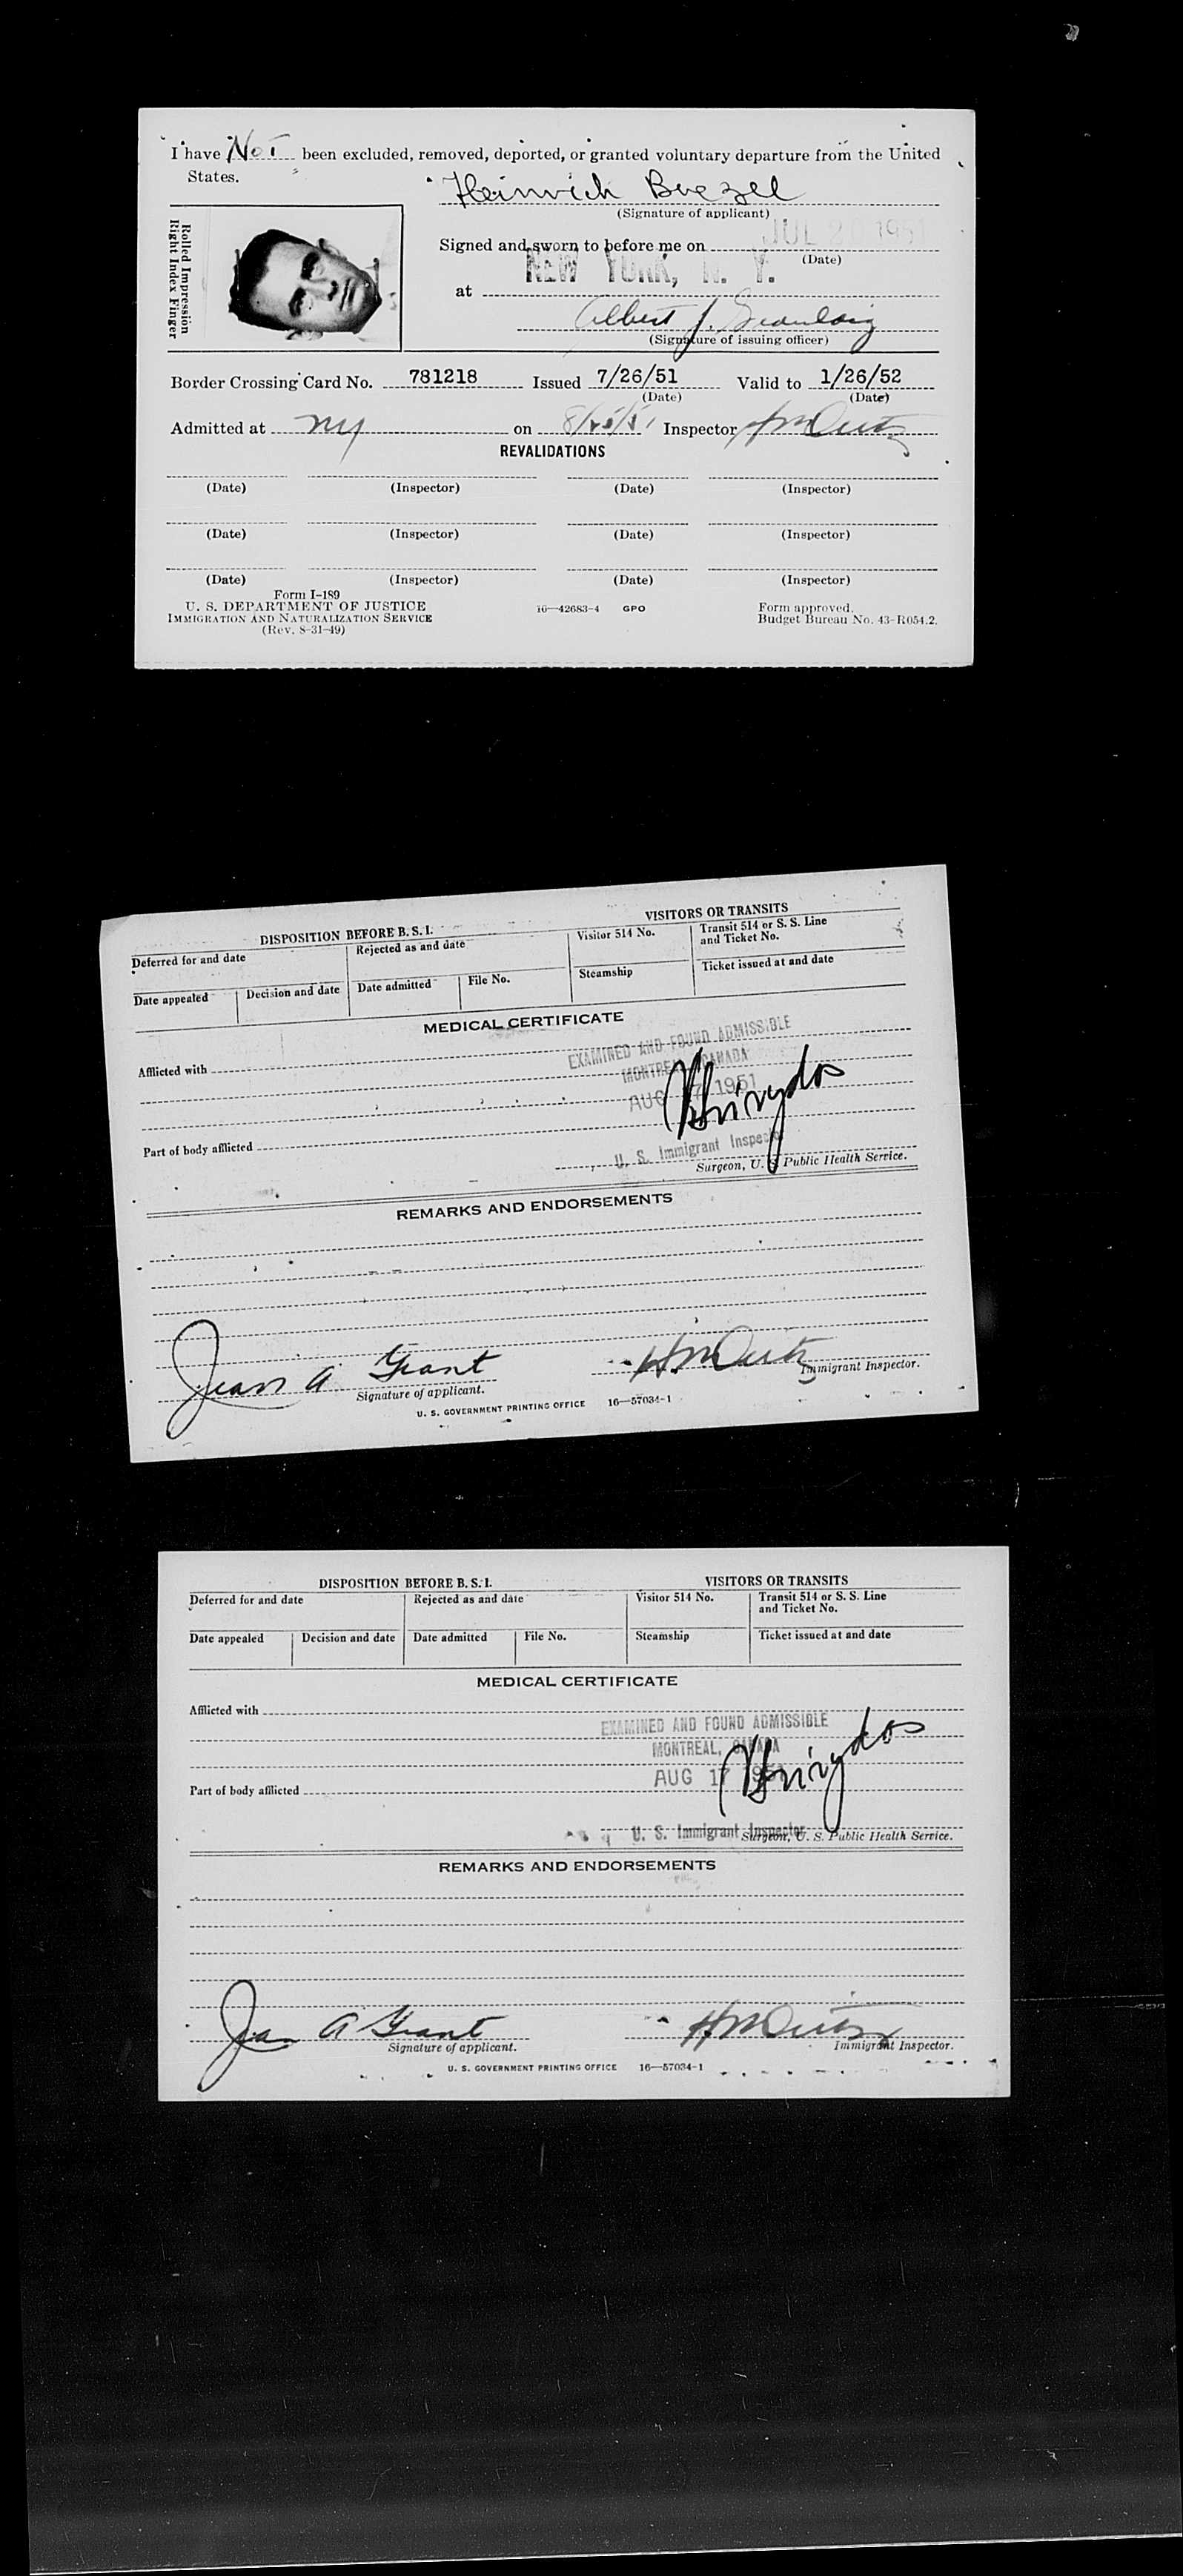 I have Not been excluded, removed, deported, or granted voluntary departure from the United
States.
Heinrich
(Signature of applicant)
Rolled Impression
Right Index Finger
Signed and sworn to before me on JUL 20 1951
(Date)
NEW YORK, N. Y.
at
Albert J.
(Signature of issuing officer)
Border Crossing Card No. 781218 Issued 7/26/51 Valid to 1/26/52
(Date) (Date)
Admitted at NY on Inspector
REVALIDATIONS
(Date) (Inspector) (Date) (Inspector)
(Date) (Inspector) (Date) (Inspector)
(Date) (Inspector) (Date) (Inspector)
Form I-189
U. S. DEPARTMENT OF JUSTICE
IMMIGRATION AND NATURALIZATION SERVICE
(Rev. 8-31-49)
16—42683-4 GPO
Form approved.
Budget Bureau No. 43-R054.2.
DISPOSITION BEFORE B. S. I. VISITORS OR TRANSITS
Deferred for and date Rejected as and date Visitor 514 No. Transit 514 or S. S. Line
and Ticket No.
Date appealed Decision and date Date admitted File No. Steamship Ticket issued at and date
MEDICAL CERTIFICATE
Afflicted with
EXAMINED AND FOUND ADMISSIBLE
MONTREAL, CANADA
AUG 17 1951
Part of body afflicted
U. S. Immigrant Inspector
Surgeon, U. S. Public Health Service.
REMARKS AND ENDORSEMENTS
Jean A Grant
Signature of applicant. Immigrant Inspector.
U. S. GOVERNMENT PRINTING OFFICE 16—57034-1
DISPOSITION BEFORE B. S. I. VISITORS OR TRANSITS
Deferred for and date Rejected as and date Visitor 514 No. Transit 514 or S. S. Line
and Ticket No.
Date appealed Decision and date Date admitted File No. Steamship Ticket issued at and date
MEDICAL CERTIFICATE
Afflicted with
EXAMINED AND FOUND ADMISSIBLE
MONTREAL, CANADA
AUG 17 1951
Part of body afflicted
U. S. Immigrant Inspector
Surgeon, U. S. Public Health Service.
REMARKS AND ENDORSEMENTS
A Grant
Signature of applicant. Immigrant Inspector.
U. S. GOVERNMENT PRINTING OFFICE 16—57034-1